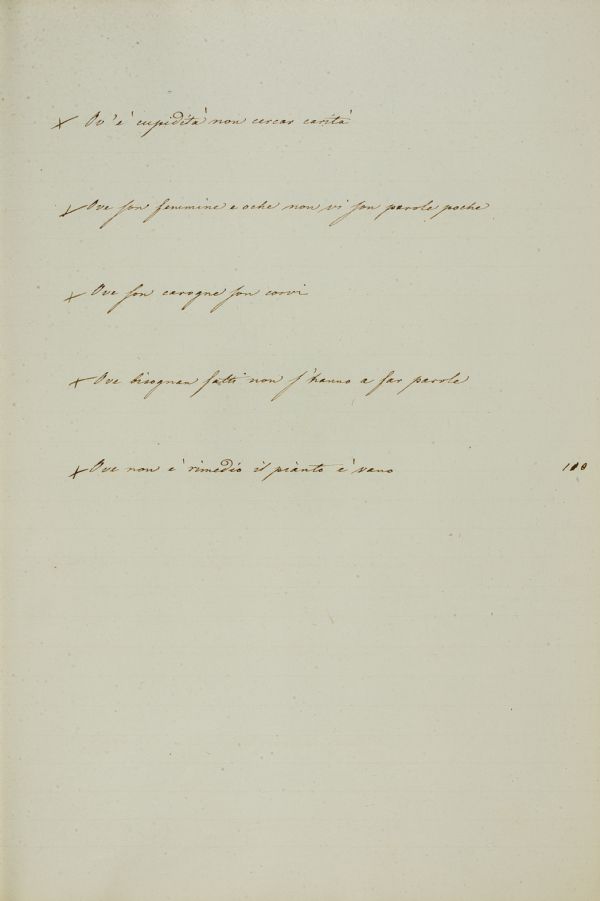 x Ov' è cupidità non cercar carità
x Ove son femmine e oche non vi son parole poche
x Ove son carogne son corvi
x Ove bisognan fatti non s'hanno a far parole
x Ove non è rimedio il pianto è vano 100